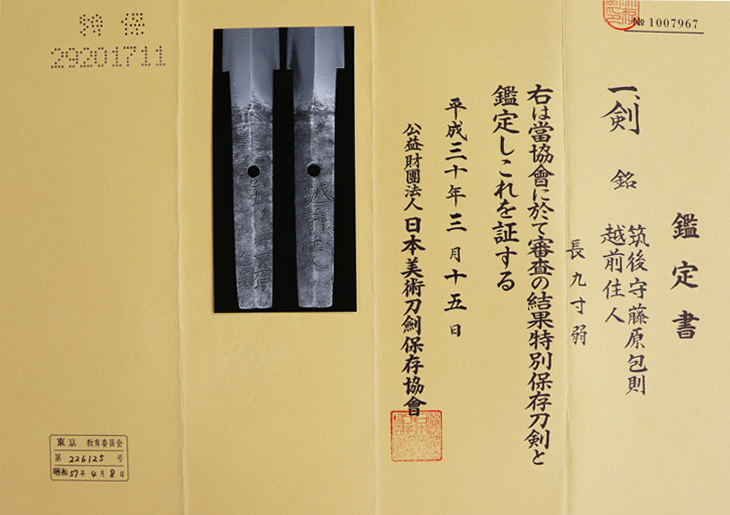 № 1007967
鑑定書
一、剣 銘 筑後守藤原包則
越前住人
長九寸弱
右は當協會に於て審査の結果特別保存刀剣と
鑑定しこれを証する
平成三十年三月十五日
公益財團法人 日本美術刀劍保存協會
越前住人
特保
29201711
東京 教育委員会
第 226125 号
昭和 57年 4月 8日